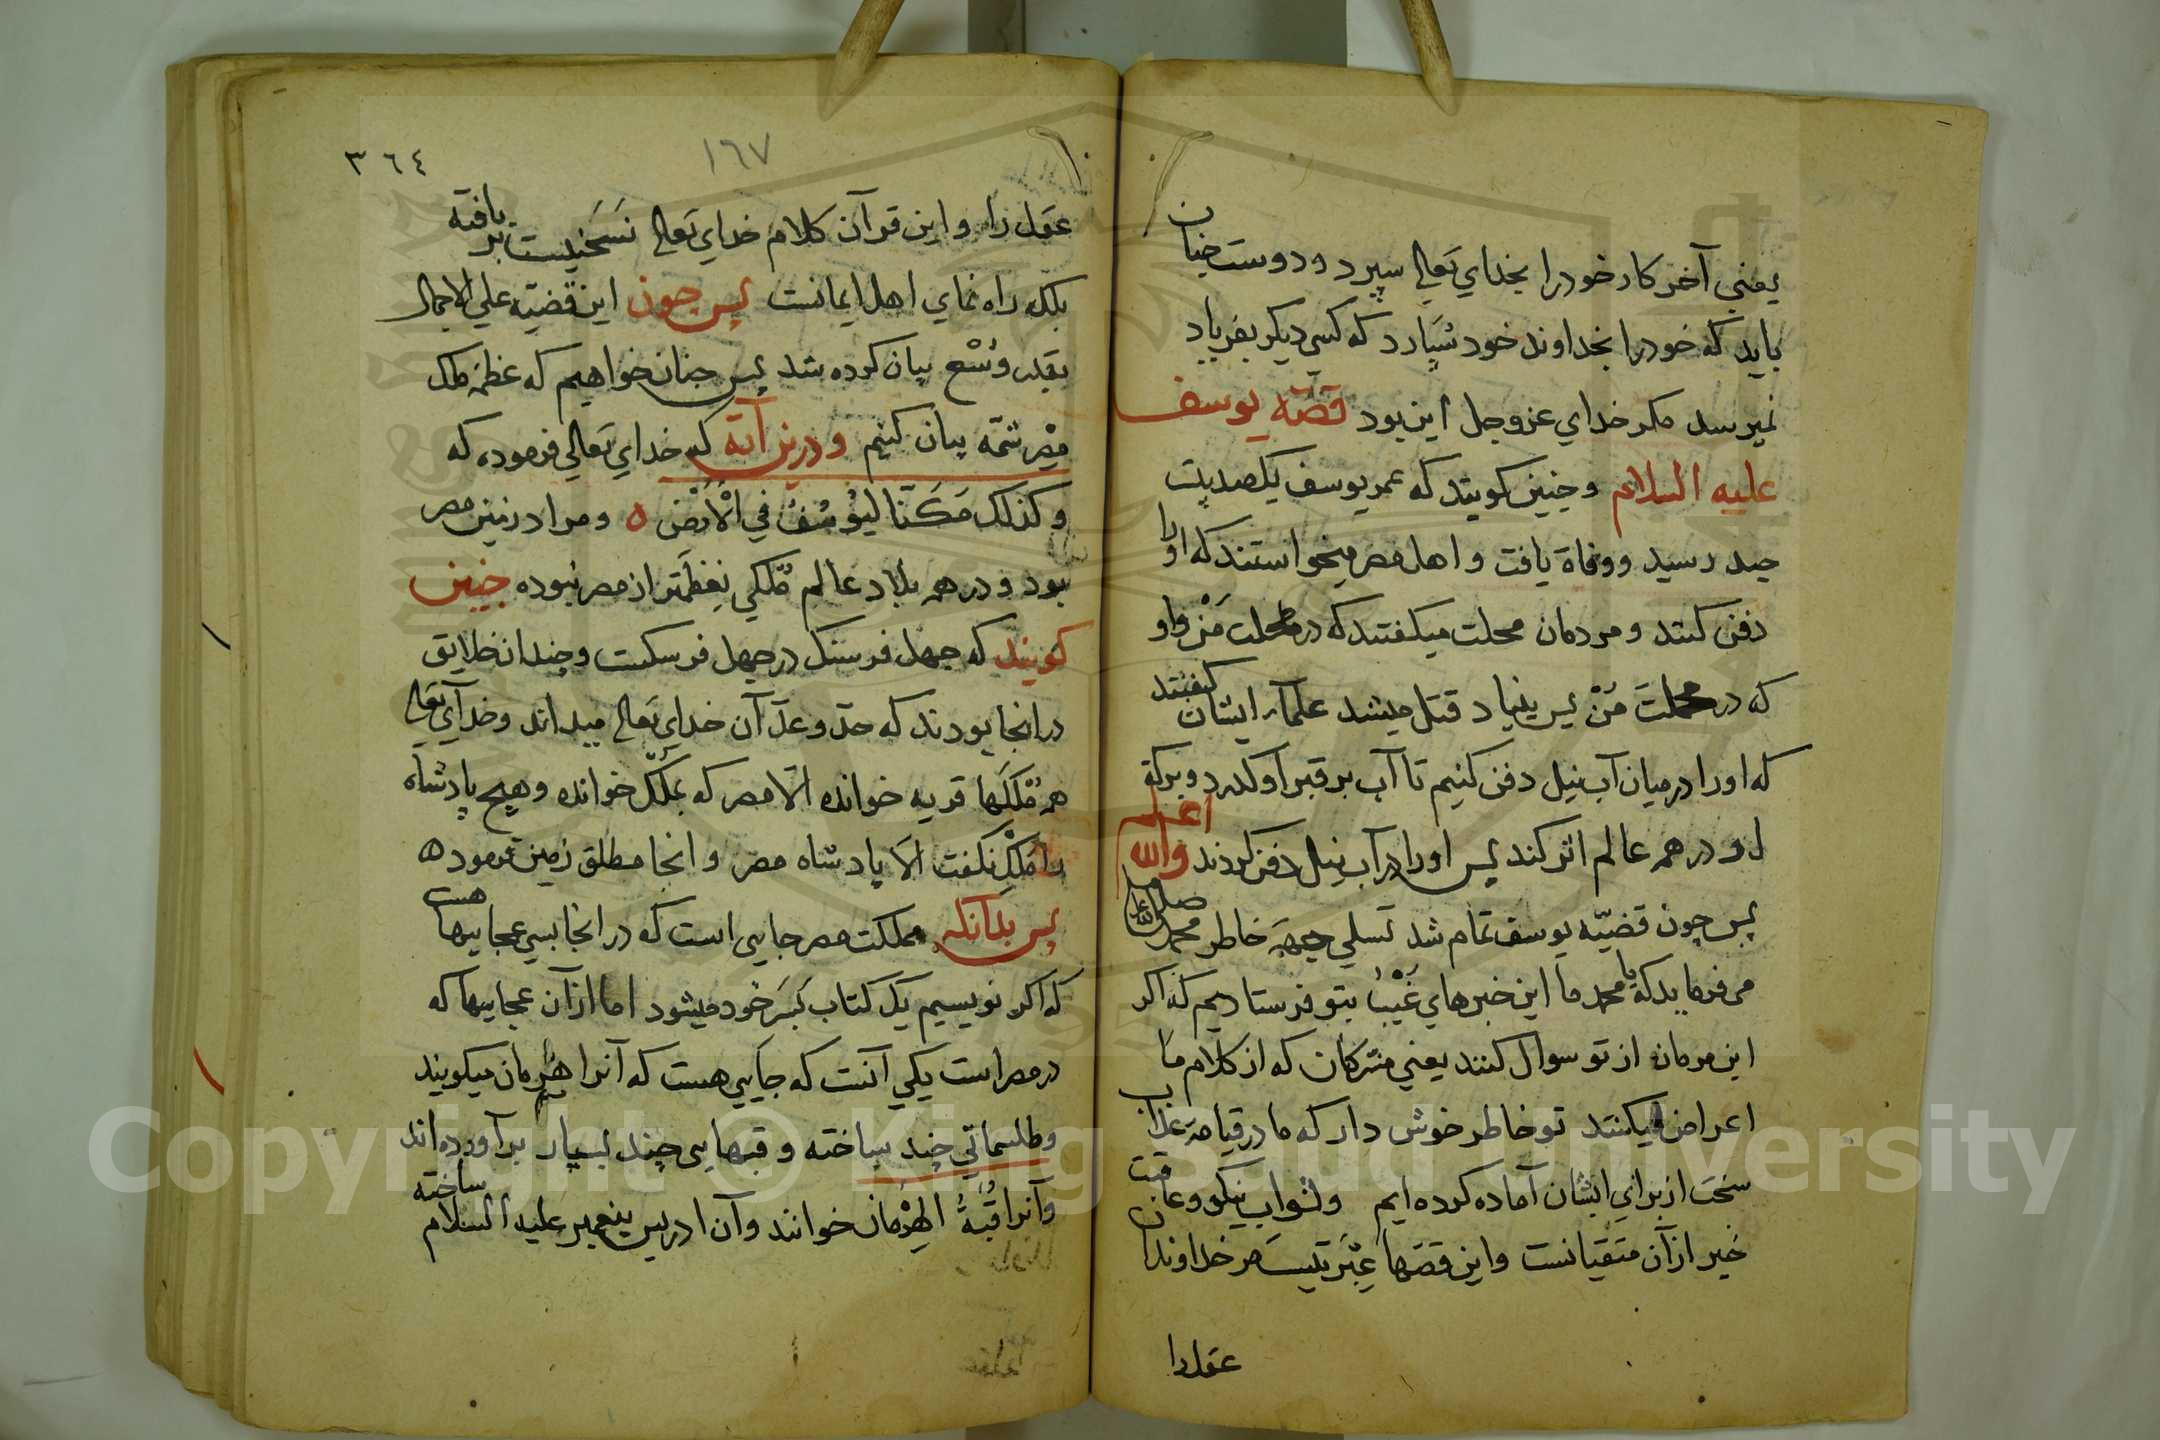 یعنی آخر کار خود را بخدای تعالی سپرد و دوست چنان
باید که خود را بخداوند خود سپارد که کسی دیکر بفریاد
نمیرسد مکر خدای عزوجل این بود قصّه یوسف
علیه السلام و چنین کویند که عمر یوسف یکصد بیست
رسید و وفاة یافت و اهل مصر میخواستند که اورا
دفن کنند و مردمان محلت میکفتند که در محلت من و او
که در محلت من پس بنیاد قتل میشد علمآء ایشان کیفتند
که اورا در میان آب نیل دفن کنیم تا آب بر قبر او کدرد و برکة
او در همه عالم اثر کند پس اورا در آب نیل دفن کردند والله اعلم
پس چون قضیّه یوسف تمام شد تسلی جهة خاطر محمد صلی الله علیه
می فرماید که یا محمد ما این خبرهای غیب بتو فرستادیم که اکر
این مردمان از تو سوال کنند یعنی مشرکان که از کلام ما
اعراض میکنند تو خاطر خوش دار که ما در قیامة عذاب
سخت از برای ایشان آماده کرده ایم و ثواب نیکو و عاقبت
خیر از آن متقیانست و این قصّها عبرتیست مر خداوندان
عقل را
٣٦٤
١٦٧
عقل را و این قرآن کلام خدای تعالی نسخنیست بر بافته
بلکه راه نمای اهل ایمانست پس چون این قضیّه علی الاجمال
بقدر وسع بیان کرده شد پس چنان خواهیم که عظمة ملک
مصر شمّه بیان کنیم و درین آیة که خدای تعالی فرموده که
و کذلک مکّنّا لیوسف فی الأرض ه و مراد زمین مصر
بود و در همه بلاد عالم ملکی بعظمتر از مصر نبوده چنین
کویند که چهل فرسنک در چهل فرسکست و چندان خلایق
در انجا بودند که حدّ و عدّ آن خدای تعالی میداند و خدآی تعالی
همه ملکها قریه خوانده الّا مصر که بملک خوانده و هیچ پادشاه
را ملک نکفت الّا پادشاه مصر و انجا مطلق زمین فرموده
پس بدآنکه مملکت مصر جایی است که در انجا بسی عجایبها هست
که اکر نویسیم یک کتاب بسر خود میشود اما از آن عجایبها که
در مصر است یکی آنست که جایی هست که آنرا هرمان میکویند
و طلسماتی چند ساخته و قبهایی چند بسیار برآورده اند
و آنرا قبّة الهرمان خوانند و آن ادریس پیغمبر علیه السلام ساخته
Copyright © King Saud University